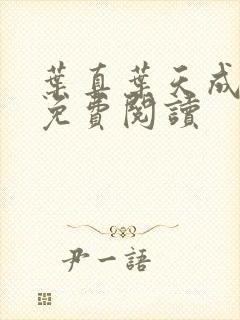 葉真葉天成
免費閱讀
尹一語